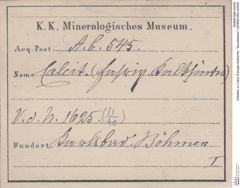 K. K. Mineralogisches Museum.
Acq. Post. A. b. 545.
Name Calcit. (fasrig. Kalksinter)
V. d. N. 1625. (11/40)
Fundort Karlsbad. Böhmen
I